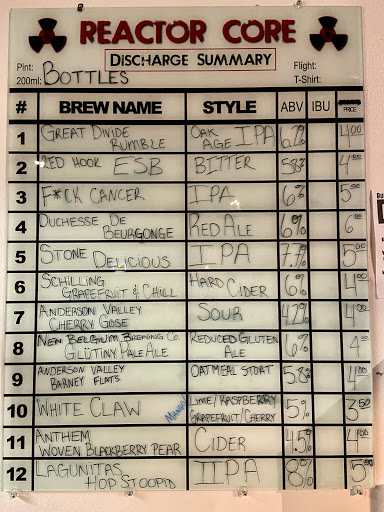 REACTOR CORE
DISCHARGE SUMMARY
Pint: BOTTLES Flight:
200ml: T-Shirt:
# BREW NAME STYLE ABV IBU PRICE
1 GREAT DIVIDE RUMBLE OAK AGE IPA 6.7% 4.00
2 RED HOOK ESB BITTER 5.8%
3 F*CK CANCER IPA 6% 5.00
4 DUCHESSE DE BEURGONGE RED ALE 6% 6.00
5 STONE DELICIOUS IPA 7.7% 5.00
6 SCHILLING GRAPEFRUIT & CHILL HARD CIDER 6% 4.00
7 ANDERSON VALLEY CHERRY GOSE SOUR 4.2% 4.00
8 NEW BELGIUM BREWING CO. GLÜTINY PALE ALE REDUCED GLUTEN ALE 6% 4.00
9 ANDERSON VALLEY BARNEY FLATS OATMEAL STOAT 5.8% 4.00
10 WHITE CLAW MANGO LIME/RASPBERRY GRAPEFRUIT/CHERRY 5% 3.50
11 ANTHEM WOVEN BLACKBERRY PEAR CIDER 4.5% 4.00
12 LAGUNITAS HOP STOOPID IIPA 8% 5.00